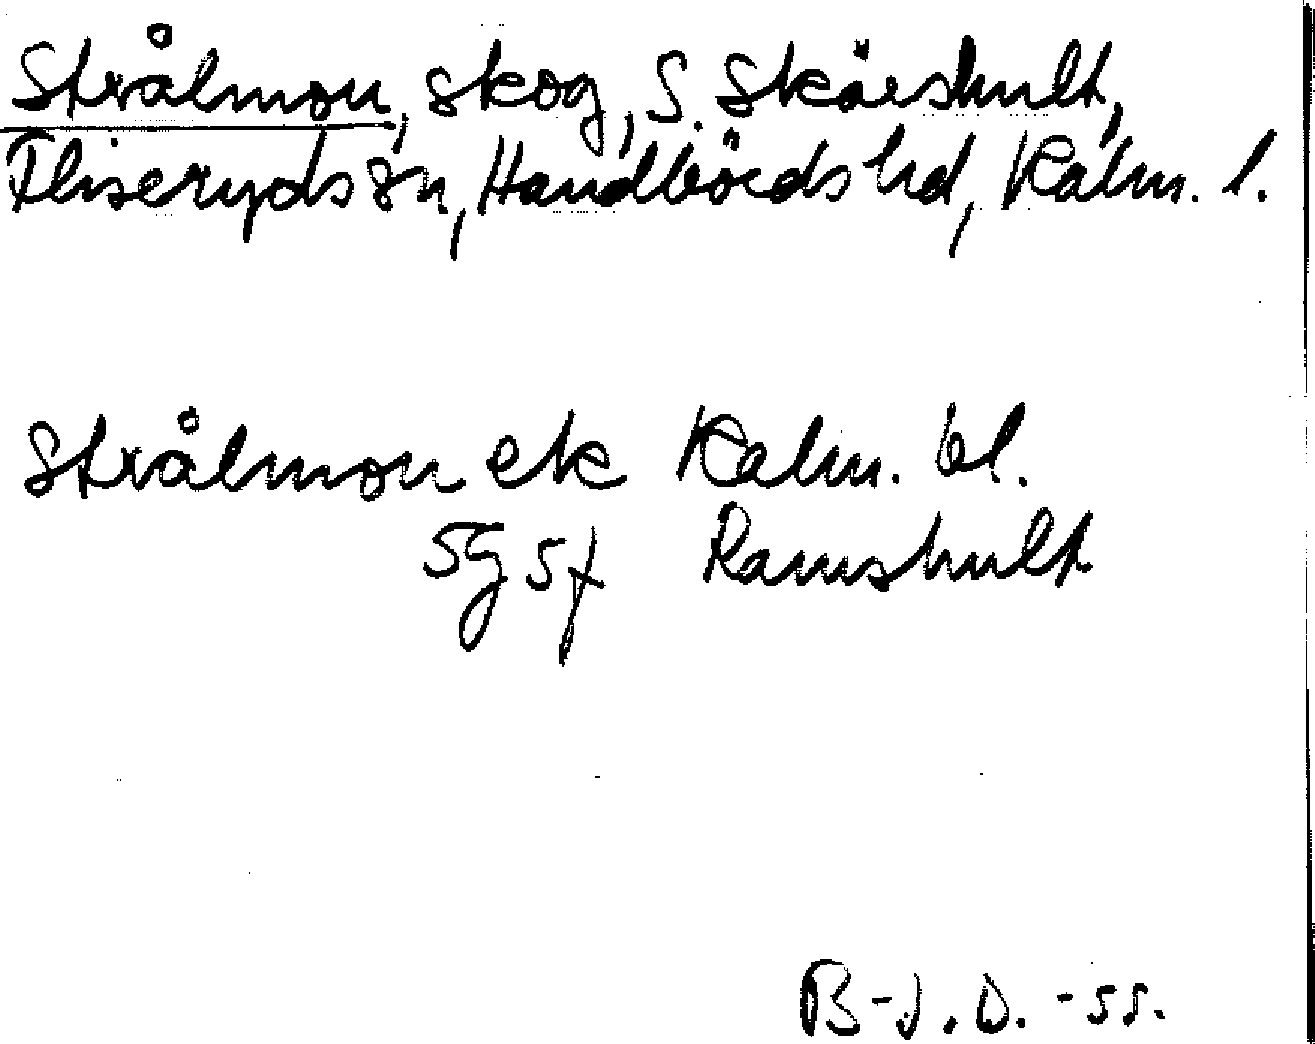 Strålmon, skog, S. Skärshult,
Fliseryds sn, Handbörds hd, Kalm. l.
Strålmon ek Kalm. bl.
5g 5f Ramshult
B-J. D. -55.